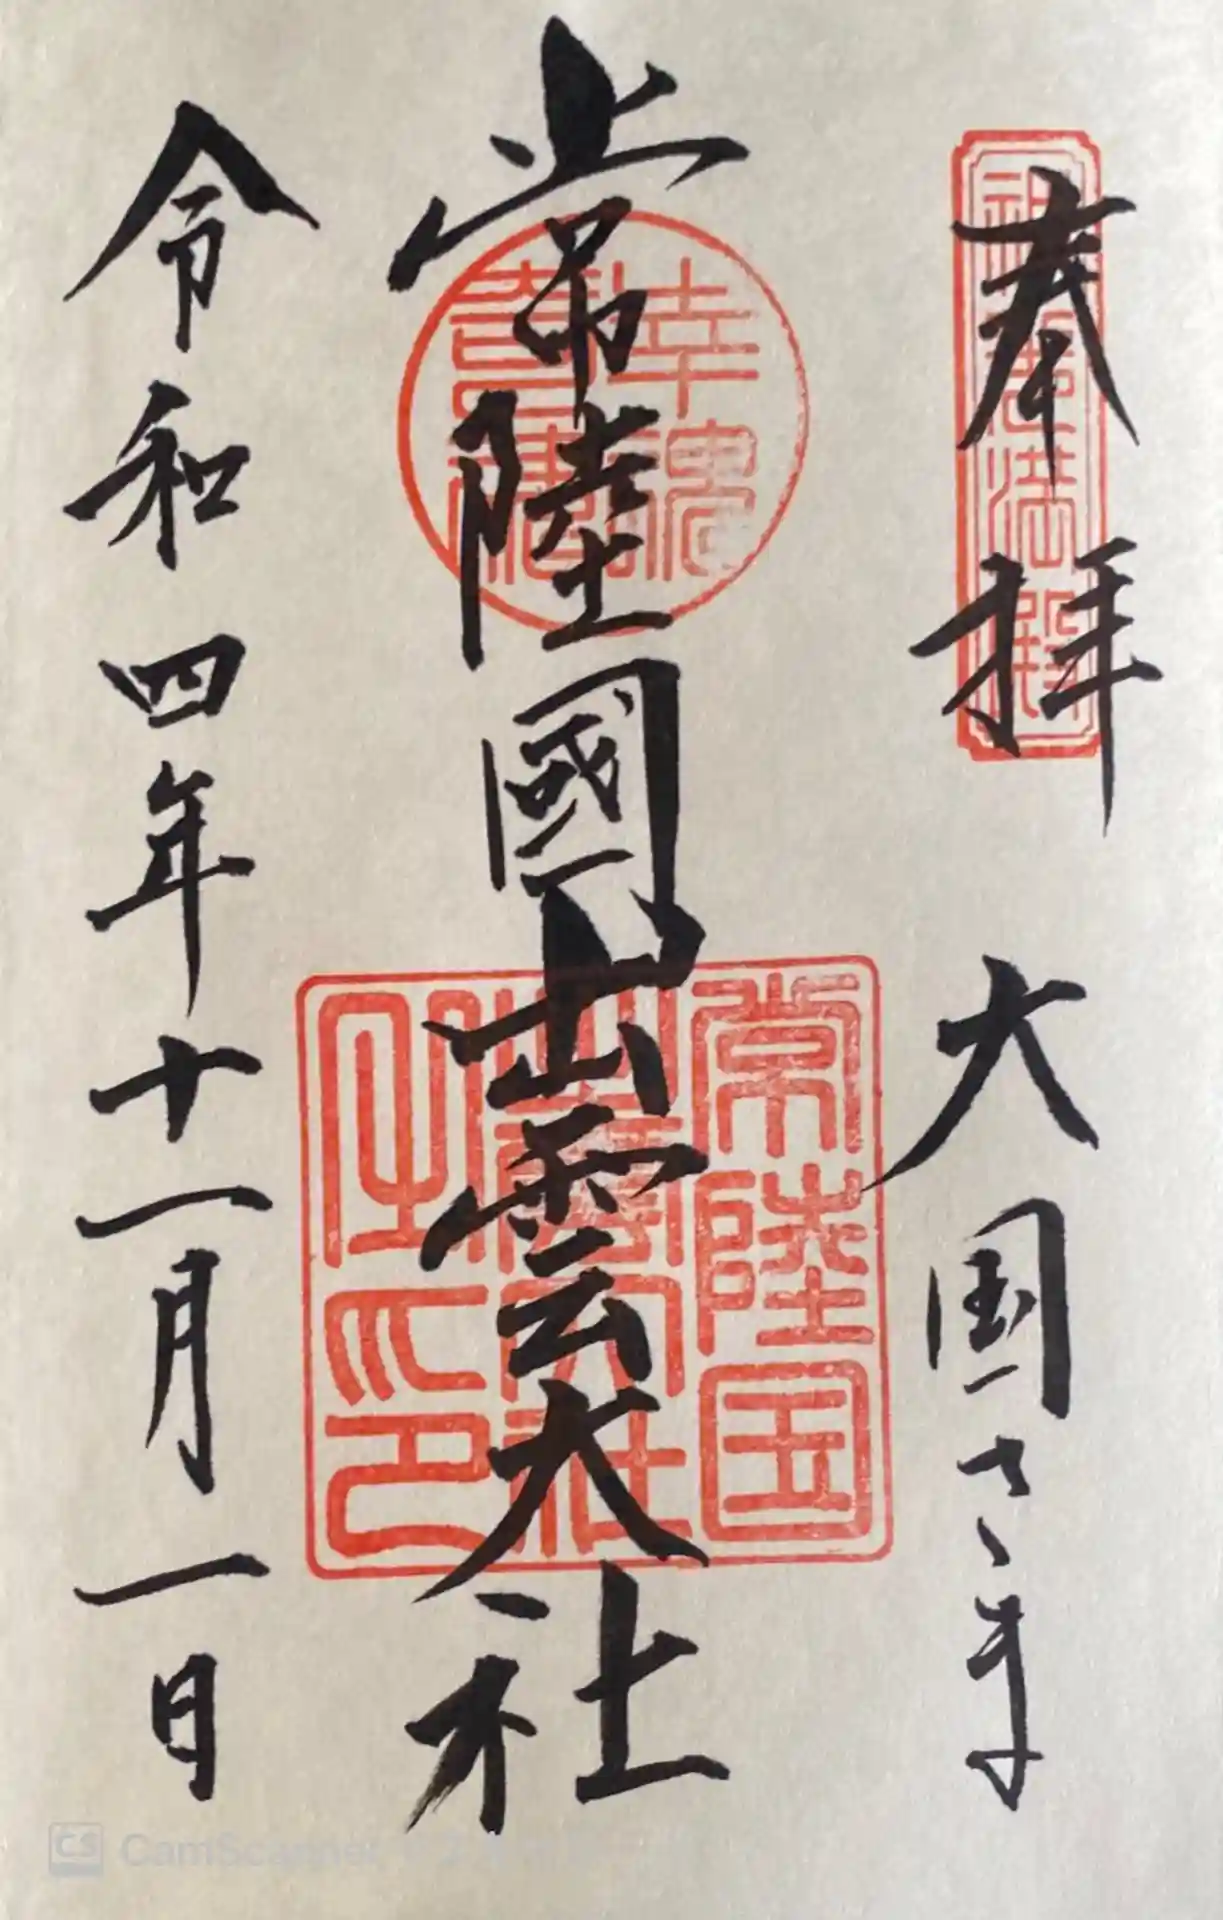 奉拝 大国さま
常陸國出雲大社
幸魂
奇魂
常陸国
出雲大社
之印
令和四年十一月一日
CamScanner